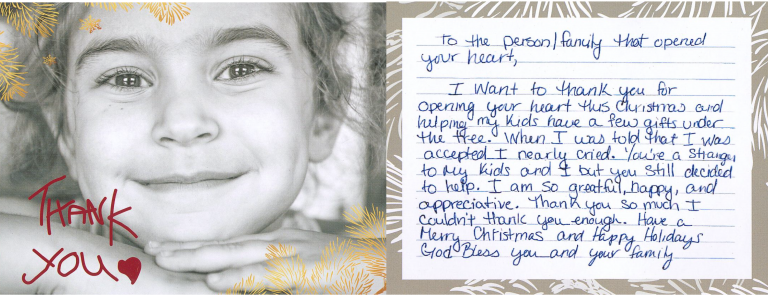 THANK
YOU
To the person/family that opened
your heart,
I want to thank you for
opening your heart this Christmas and
helping my kids have a few gifts under
the tree. When I was told that I was
accepted I nearly cried. You're a stranger
to my kids and I but you still decided
to help. I am so greatful, happy, and
appreciative. Thank you so much I
couldn't thank you enough. Have a
Merry Christmas and Happy Holidays
God Bless you and your family